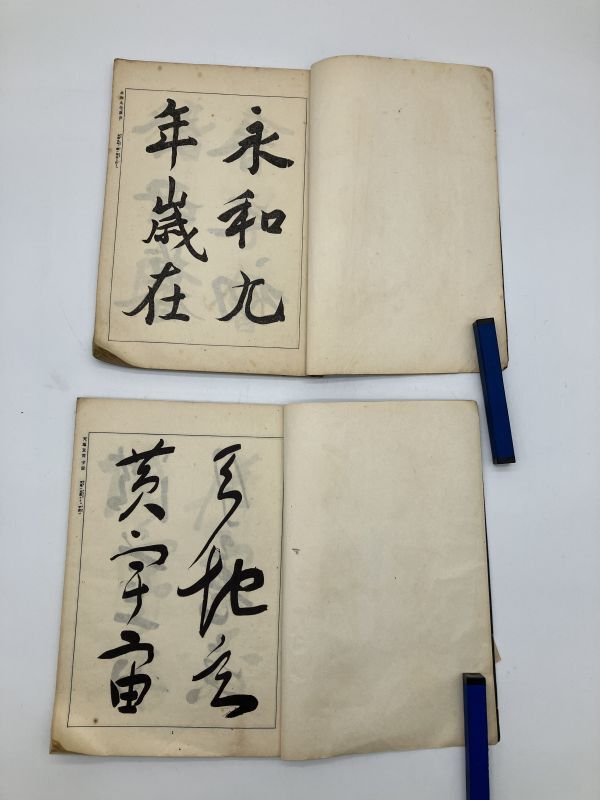 永和九
年歳在
天地玄
黄宇宙
1